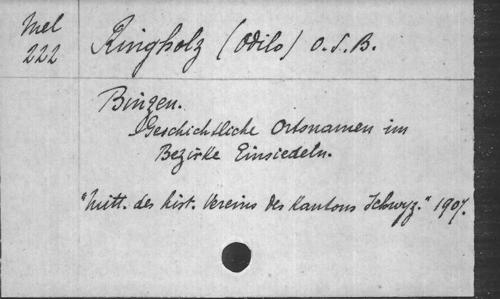 Mel
222
Ringholz (Odilo) O.S.B.
Binzen.
Geschichtliche Ortsnamen im
Bezirke Einsiedeln.
"Mitt. des hist. Vereins des Kantons Schwyz." 1907.